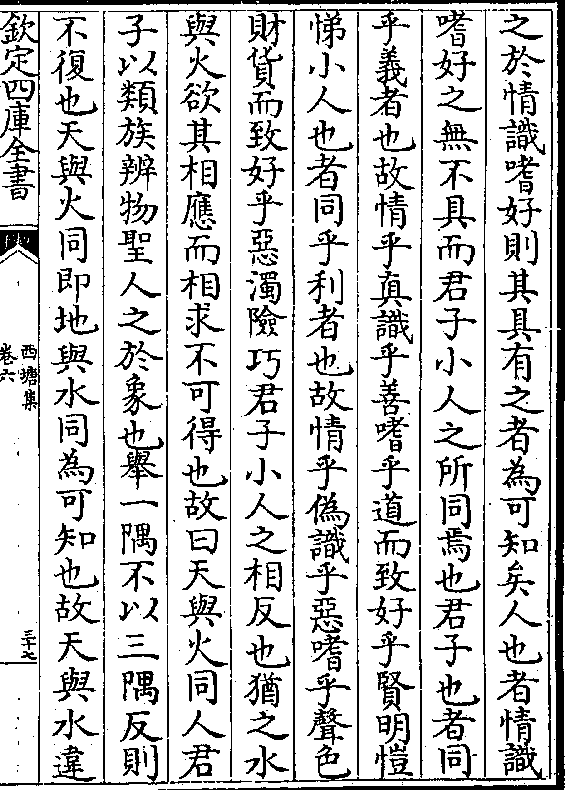 之於情識嗜好則其具有之者為可知矣人也者情識
嗜好之無不具而君子小人之所同焉也君子也者同
乎義者也故情乎真識乎善嗜乎道而致好乎賢明愷
悌小人也者同乎利者也故情乎偽識乎惡嗜乎聲色
財貨而致好乎惡濁險巧君子小人之相反也猶之水
與火欲其相應而相求不可得也故曰天與火同人君
子以類族辨物聖人之於象也舉一隅不以三隅反則
不復也天與火同即地與水同為可知也故天與水違
欽定四庫全書
西塘集
卷六
三十七